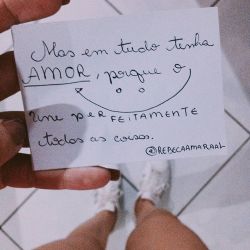 Mas em tudo tenha
AMOR, porque o
Une PERFEITAMENTE
todas as coisas.
@REBECAAMARAAL